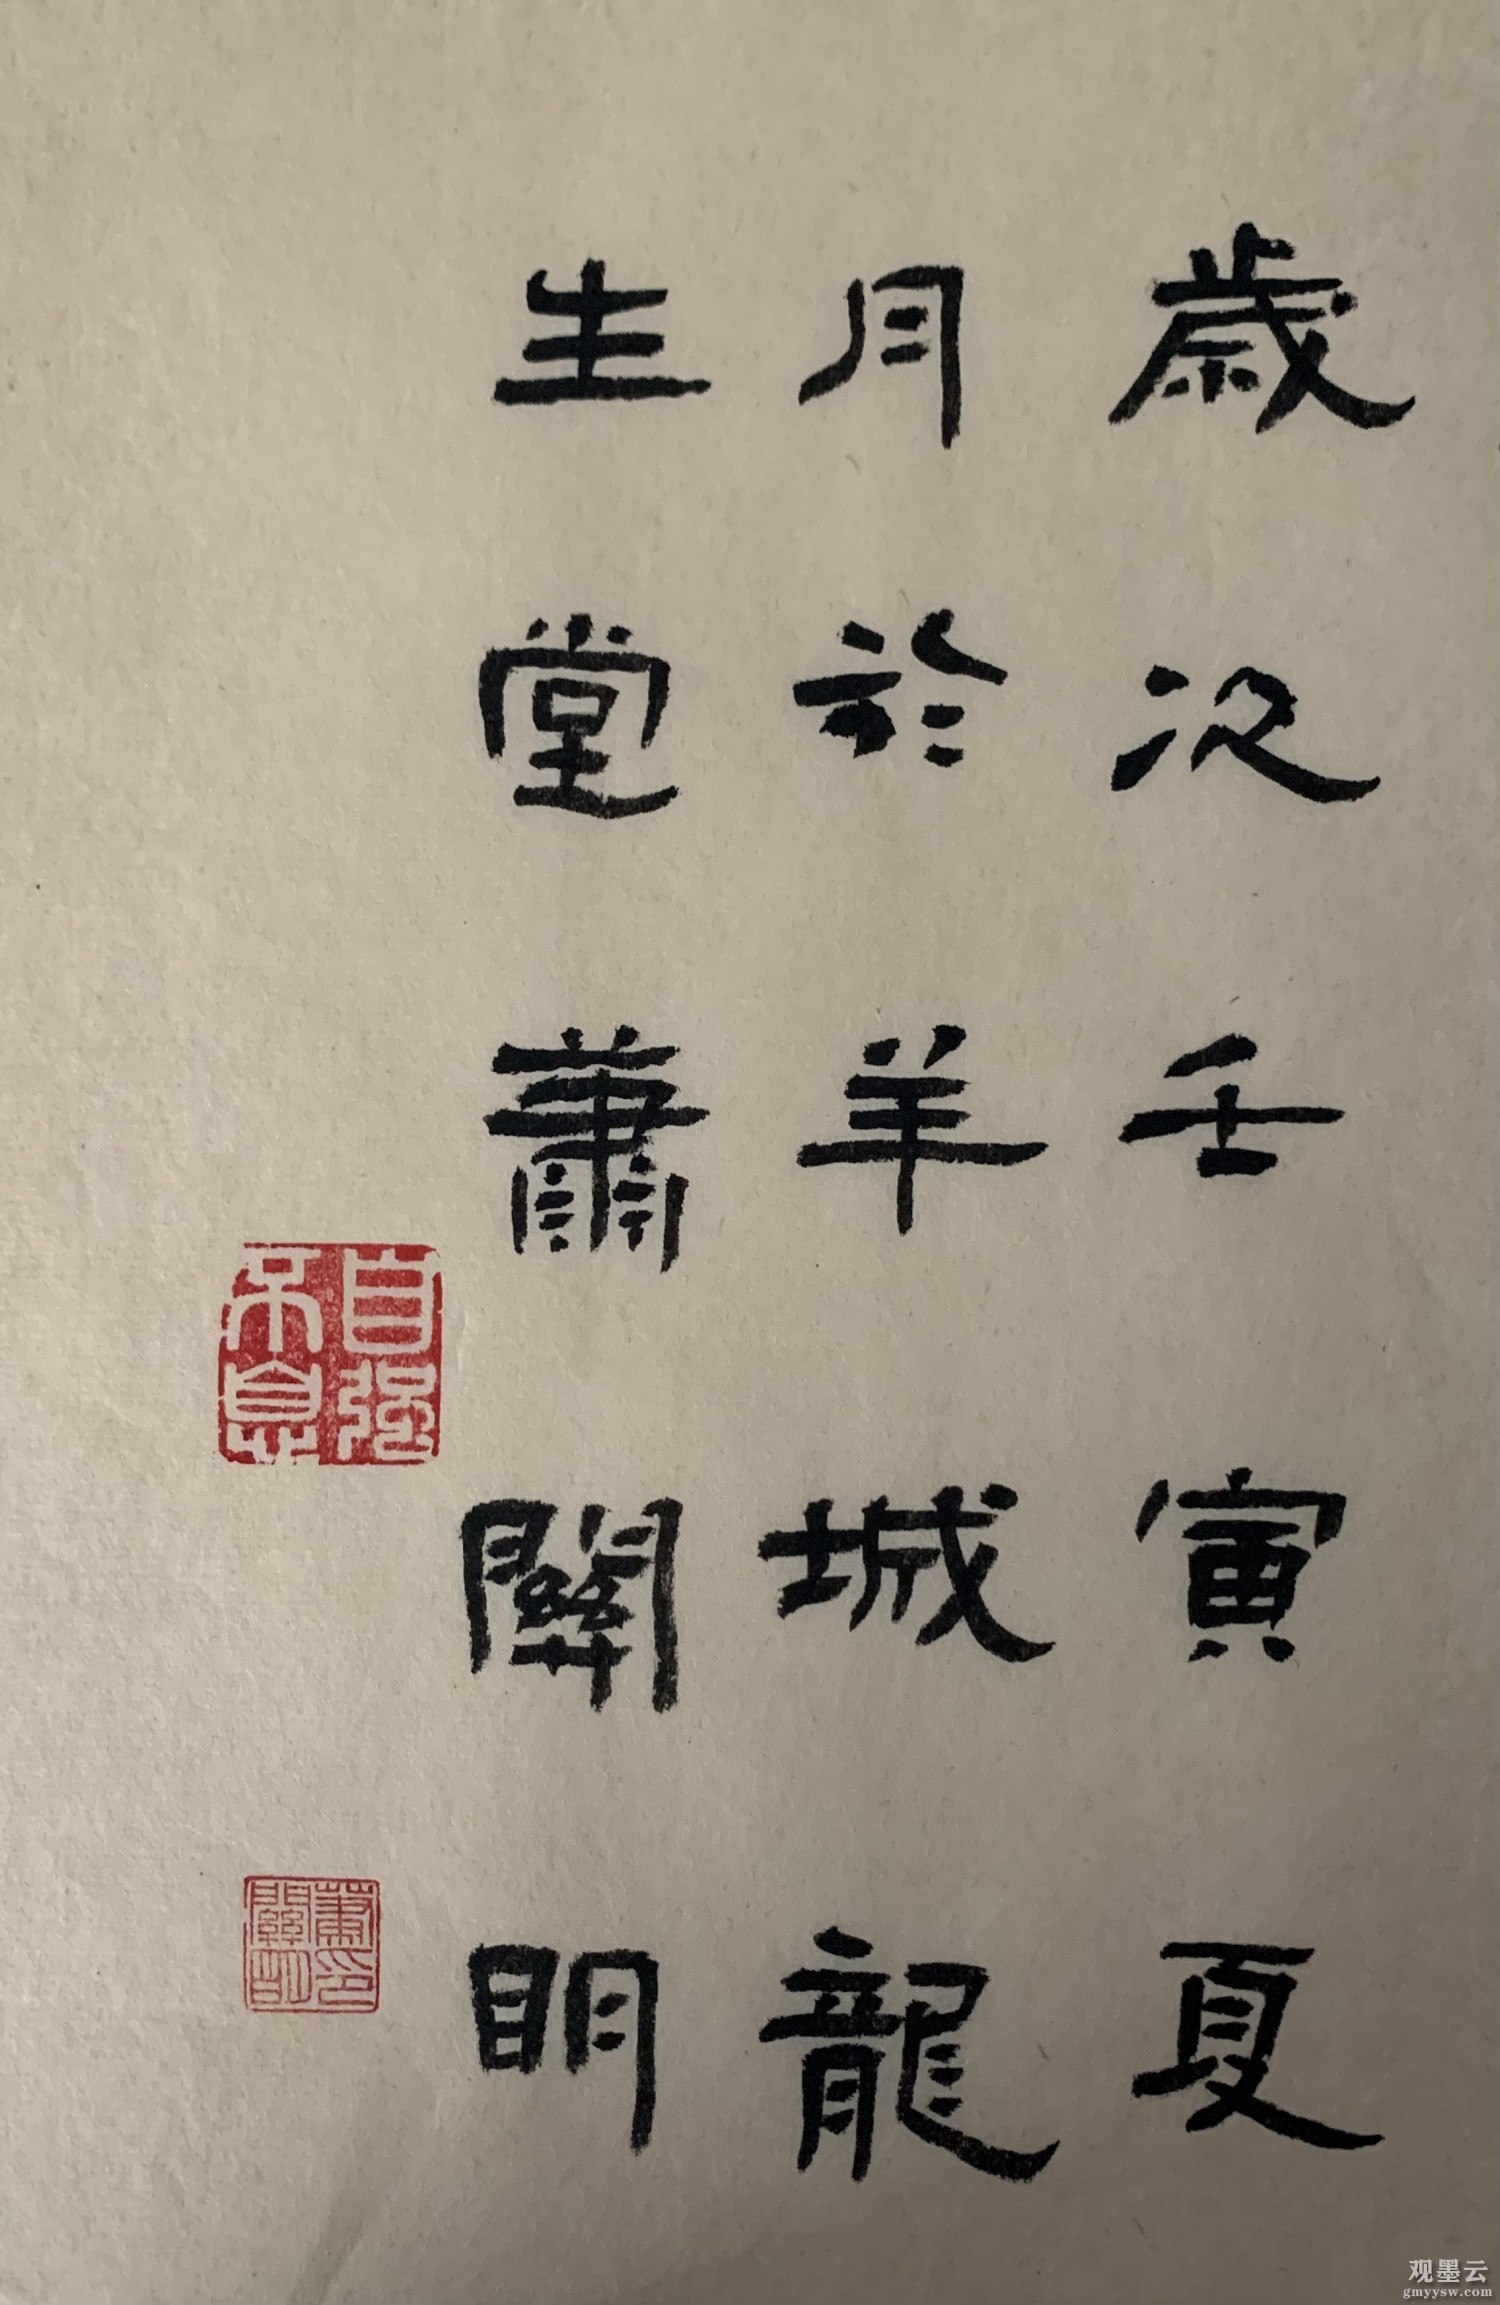 歲次壬寅夏
月於羊城龍
生堂蕭關明
自强不息
蕭印關明
观墨云
gmyysw.com